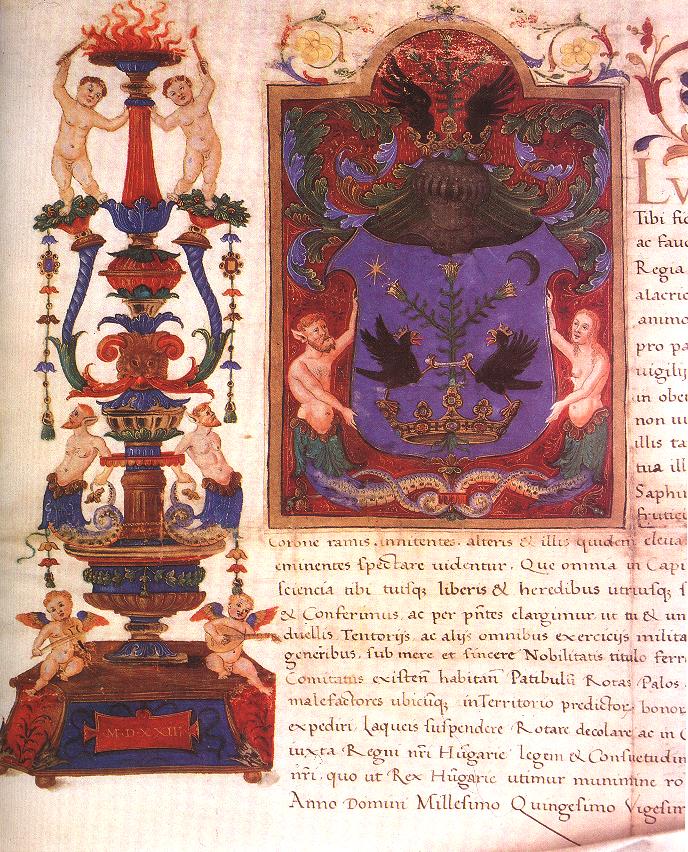 M·D·XXIII
Tibi
ac fau
Regia
alacri
animo
pro pa
uigilij
in obe
non
illis ta
tua ill
Saphi
frutici
Corone ramis innitentes, alteris & illis quidem eleua
eminentes spectare uidentur. Que omnia in Capi
sciencia tibi tuisq; liberis & heredibus utriusq; s
& Conferimus, ac per pñtes elargimur, ut tu & un
duellis, Tentorijs, ac alijs omnibus exercicijs milita
generibus, sub mere et sincere Nobilitatis titulo ferr
Comitatus existeñ habitañ Patibulũ Rotas Palos
malefactores ubicũq; in Territorio predictor bonor
expediri, Laqueis suspendere Rotare decolare ac in
iuxta Regni nr̃i Hũgarie legem & Consuetudin
nr̃i, quo ut Rex Hũgarie utimur munimine ro
Anno Domini Millesimo Quingesimo Vigesim